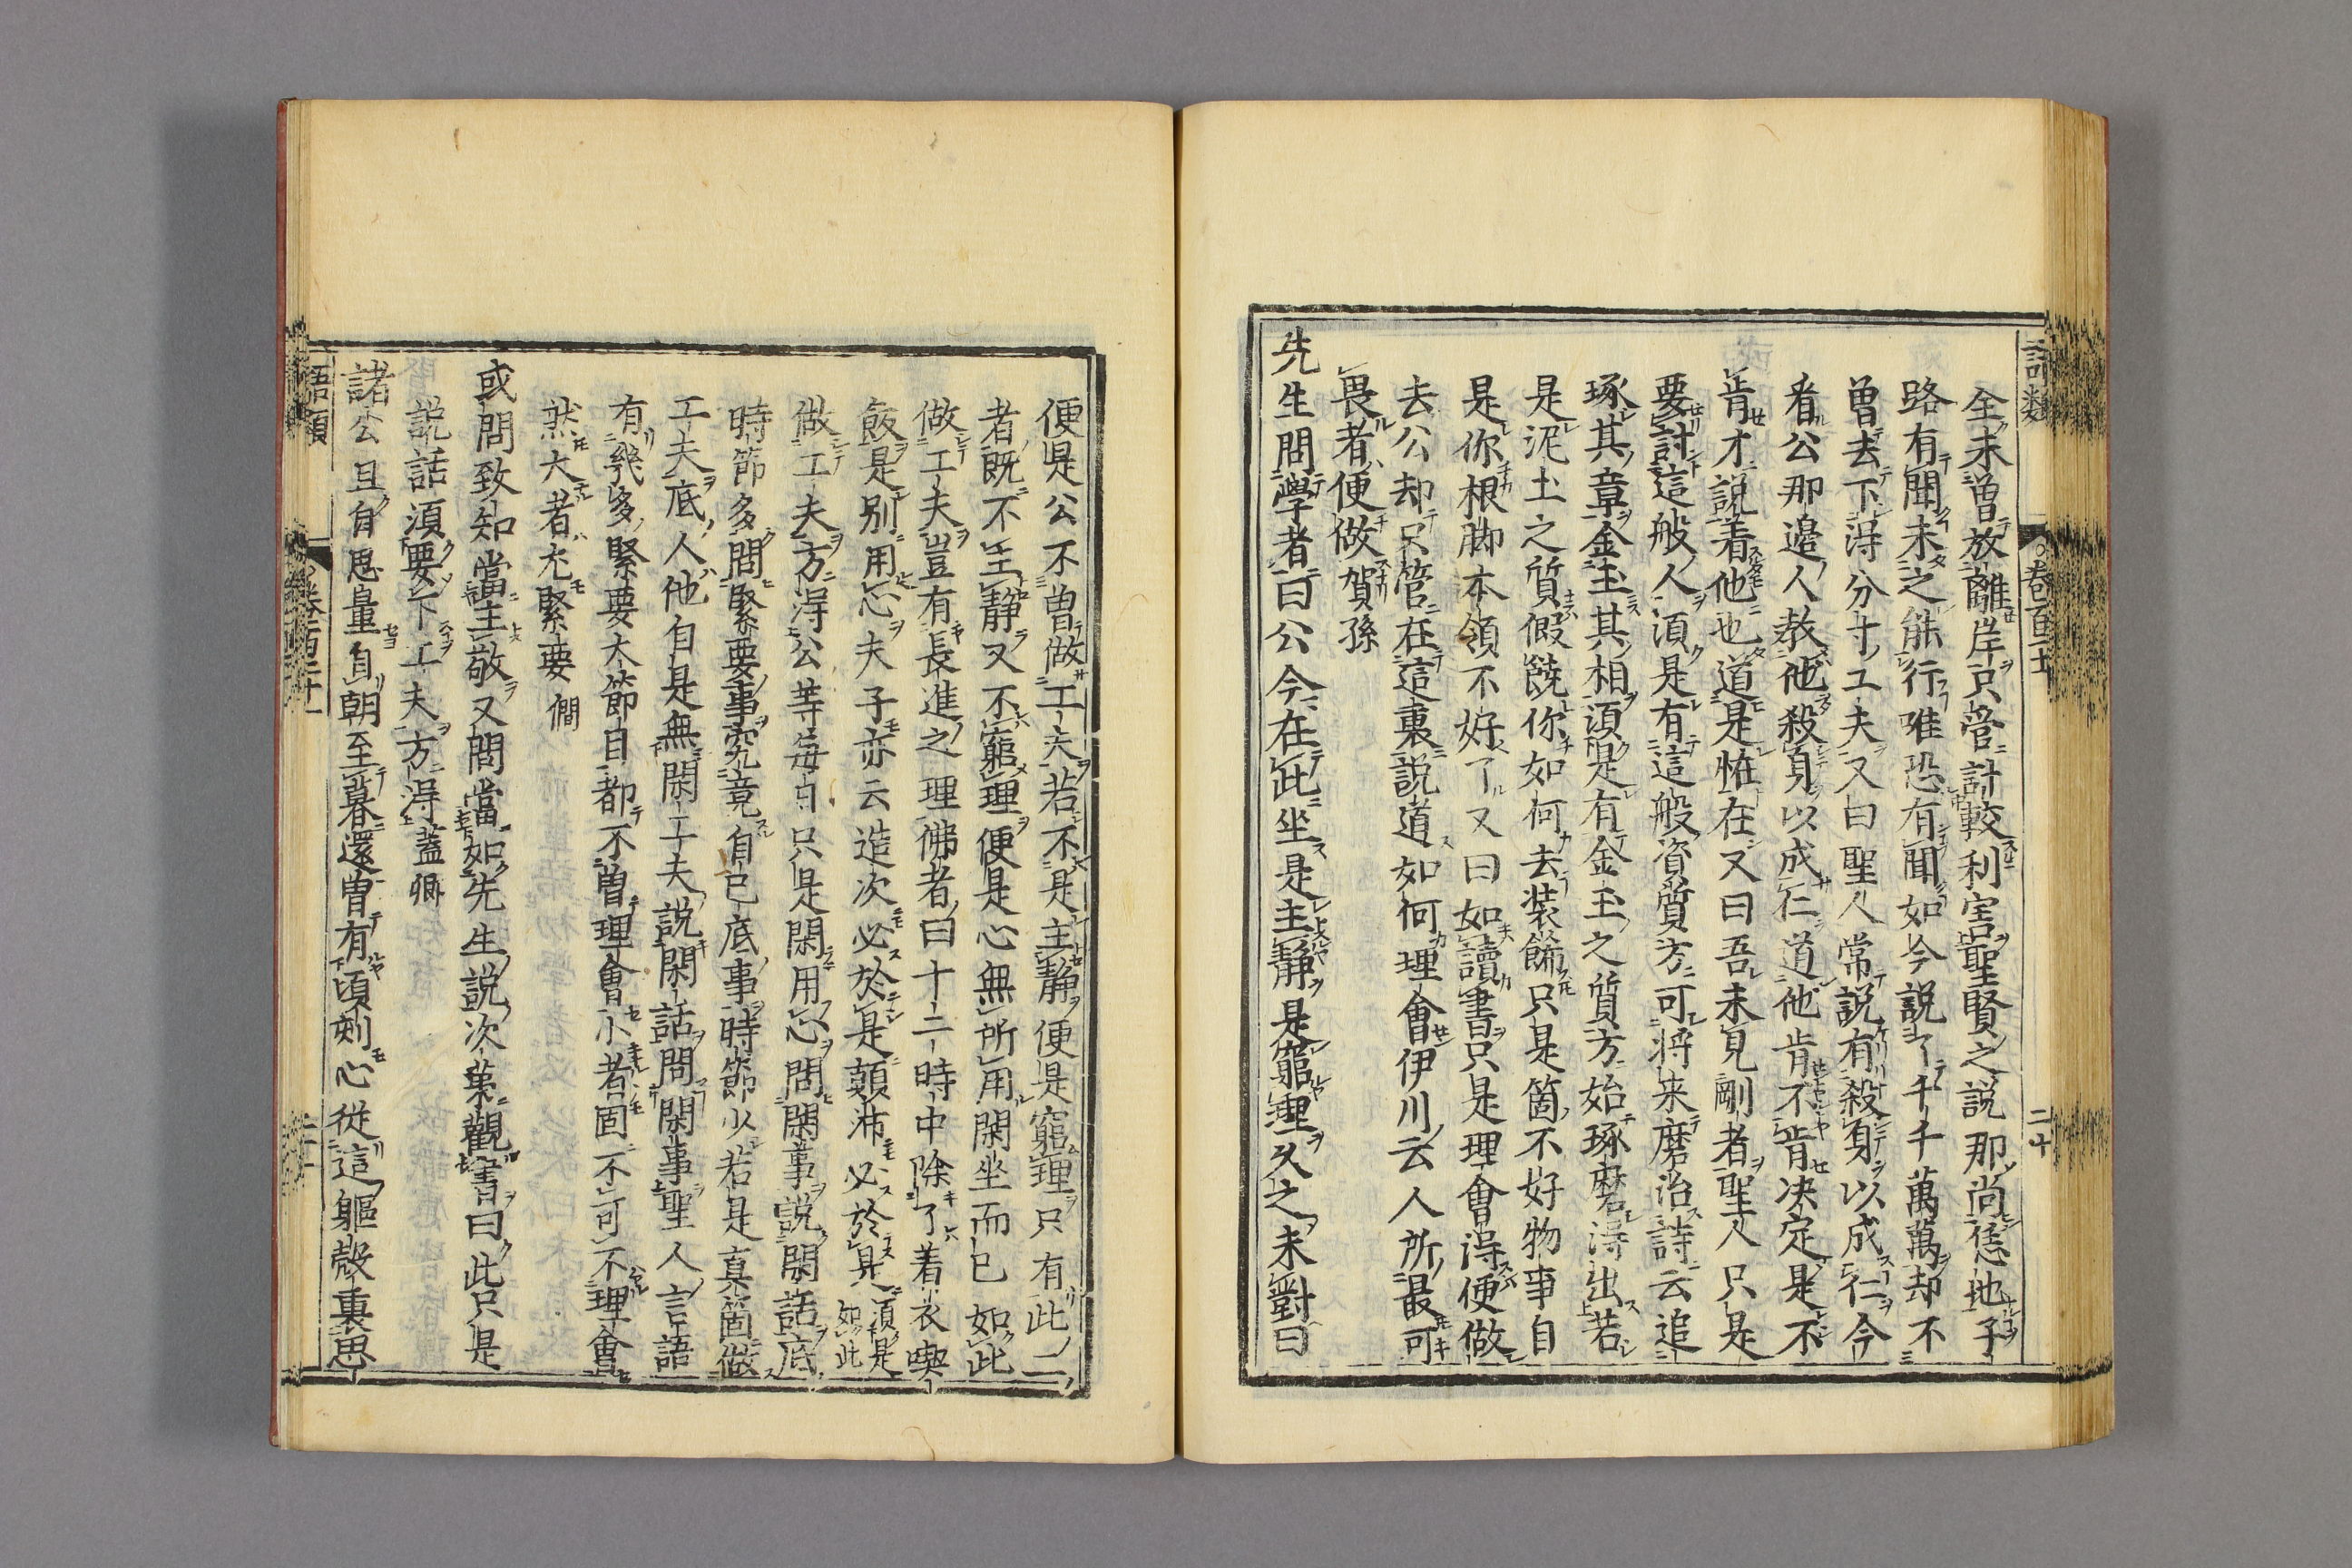 語類
卷百二十一
二十
全未曾放離岸只管計較利害聖賢之說那尚恁地子
路有聞未之能行唯恐有聞如今說了千千萬萬却不
曾去下得分寸工夫又曰聖人常說有殺身以成仁今
看公那邊人教他殺身以成仁道他肯不肯决定是不
肯才說着他也道是怪在又曰吾未見剛者聖人只是
要討這般人須是有這般資質方可將来磨治詩云追
琢其章金玉其相須是有金玉之質方始琢磨得出若
是泥土之質假饒你如何去装餙只是箇不好物事自
是你根脚本領不好了又曰如讀書只是理會得便做
去公却只管在這裏說道如何理會伊川云人所最可
畏者便做賀孫
先生問學者曰公今在此坐是主靜是窮理久之未對曰
便是公不曾做工夫若不是主靜便是窮理只有此二
者既不主靜又不窮理便是心無所用閑坐而已如此
做工夫豈有長進之理佛者曰十二時中除了着衣喫
飯是別用心夫子亦云造次必於是顛沛必於是須是如此
做工夫方得公等每日只是閑用心問閑事說閑話底
時節多問緊要事究竟自己底事時節少若是真箇做
工夫底人他自是無閑工夫說閑話問閑事聖人言語
有幾多緊要大節目都不曾理會小者固不可不理會
然大者尤緊要僩
或問致知當主敬又問當如先生說次第觀書曰此只是
說話須要下工夫方得蓋卿
諸公且自思量自朝至暮還曾有頃刻心從這軀殼裏思
語類
卷百二十一